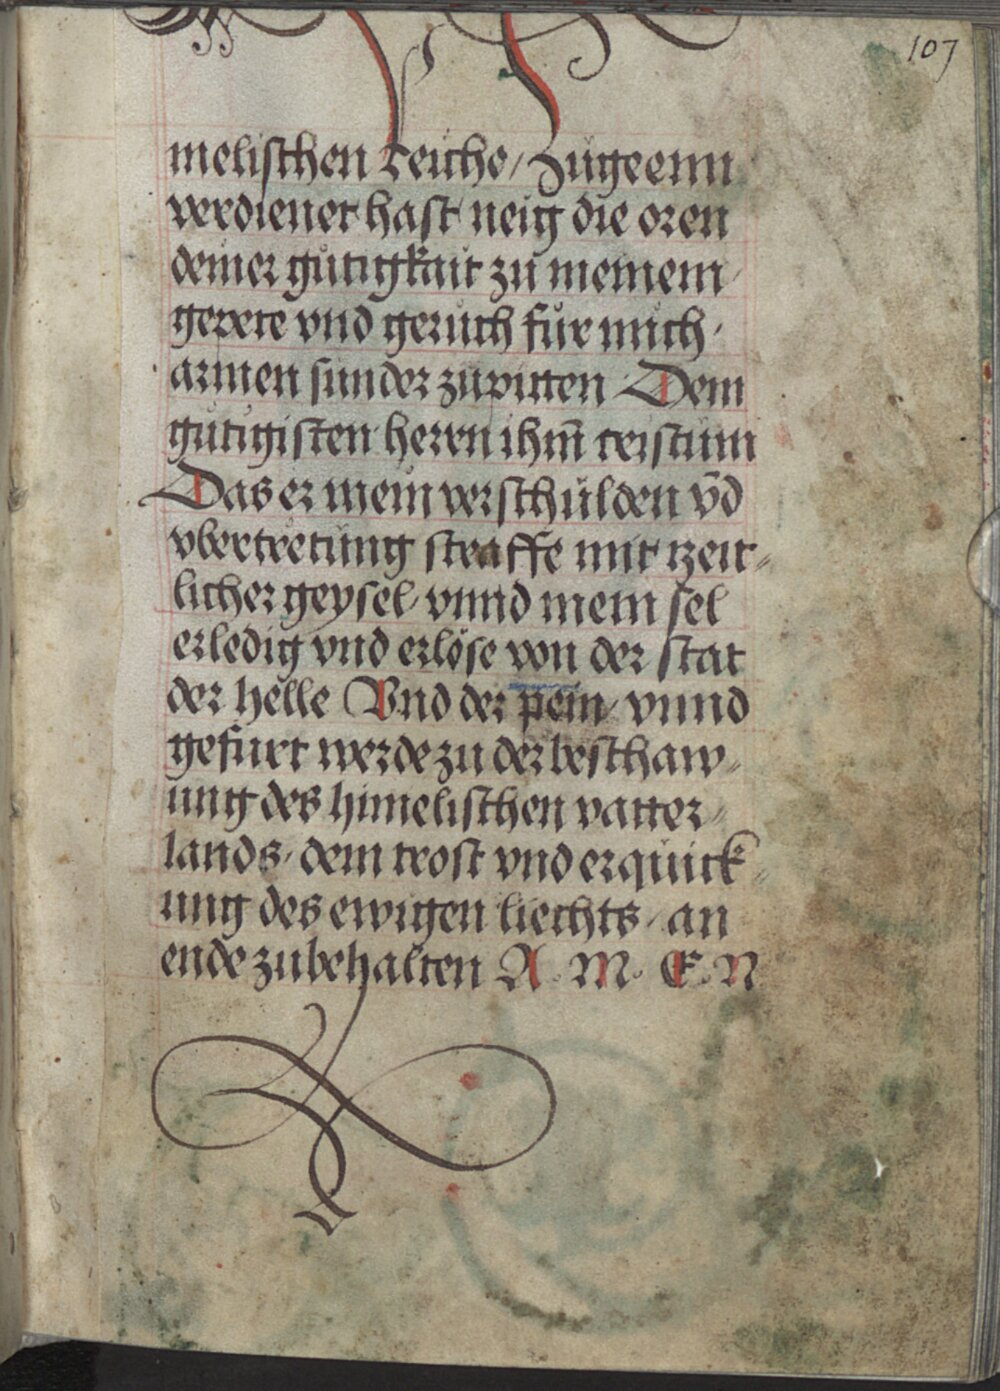 107
melischen reiche / Zugeenn
verdienet hast neig die oren
deiner gütigkait zu meinem
gepete vnd geruch für mich
armen sunder zupitten Dem
gütigisten herrn ihm̄ cristum
Das er mein verschulden vn̄d
vbertretung straffe mit tzeit-
licher geysel vnnd mein sel
erledig vnd erlöse von der stat
der helle Vnd der pein vnnd
gefurt werde zu der beschaw-
ung des himelischen vatter-
lands dem trost vnd erquick-
ung des ewigen liechts an
ende zubehalten A M E N